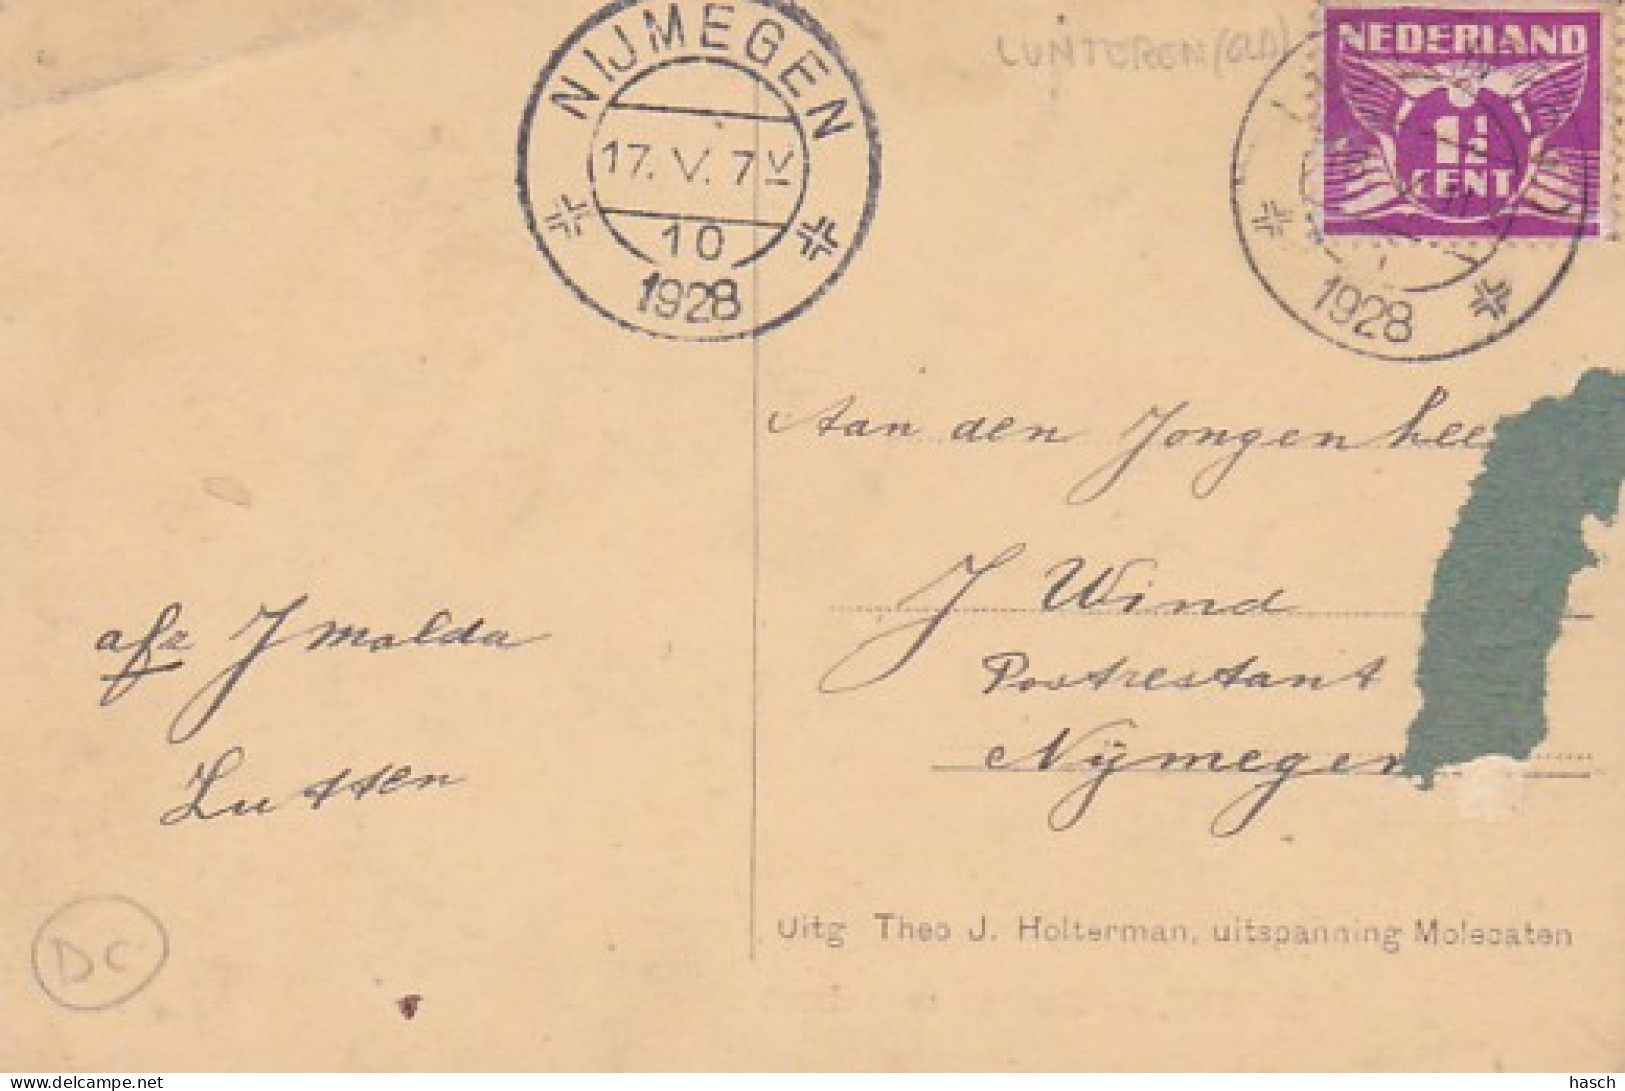 NIJMEGEN
17. V. 7V
10
1928
LUNTEREN (GLD)
NEDERLAND
1½
CENT
1928
Aan den Jongenhee
J Wind
Postrestant
Nijmegen
afz J Molda
Lutten
DC
Uitg Theo J. Holterman, uitspanning Molecaten
delcampe.net
hasch